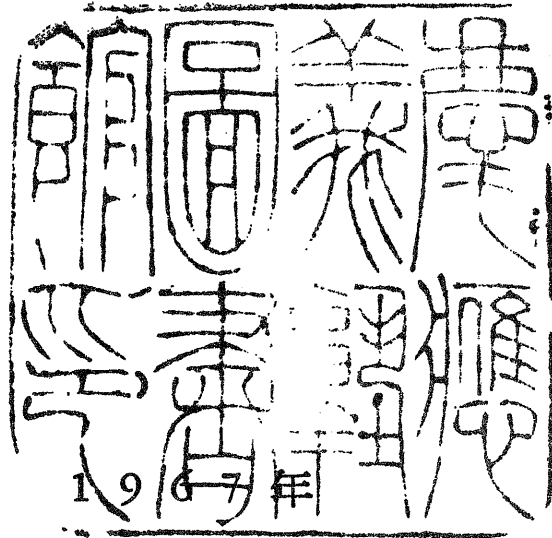 慶應
義塾
圖書
館印
1967年